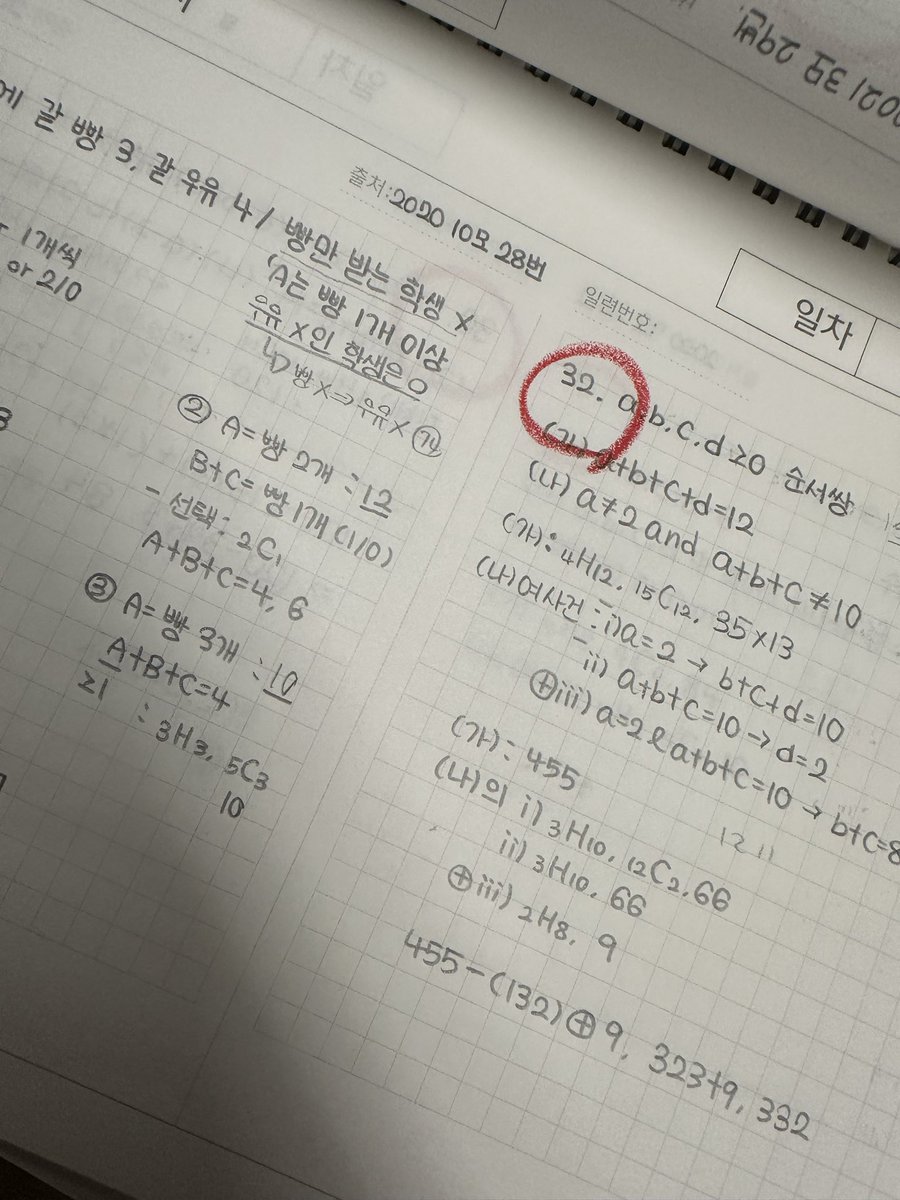 2021 3모 29번.
에 같 빵 3, 같 우유 4 / 빵만 받는 학생 X
1개씩
or 2/0
(A는 빵 1개 이상
우유 X인 학생은 O
↳ 빵 X ⇒ 우유 X
② A = 빵 2개 : 12
B+C = 빵 1개 (1/0)
- 선택 : 2C1
A+B+C=4, 6
③ A = 빵 3개 : 10
A+B+C=4
≥1 : 3H3, 5C3
10
출처: 2020 10모 28번
일련번호:
일차
32. a, b, c, d ≥0 순서쌍
(가) a+b+c+d=12
(나) a≠2 and a+b+c≠10
(가): 4H12, 15C12, 35×13
(나)여사건 : i) a=2 → b+c+d=10
- ii) a+b+c=10 → d=2
⊕iii) a=2 & a+b+c=10 → b+c=8
(가): 455
(나)의 i) 3H10, 12C2, 66
ii) 3H10, 66
⊕iii) 2H8, 9
12 11
455-(132)⊕9, 323+9, 332